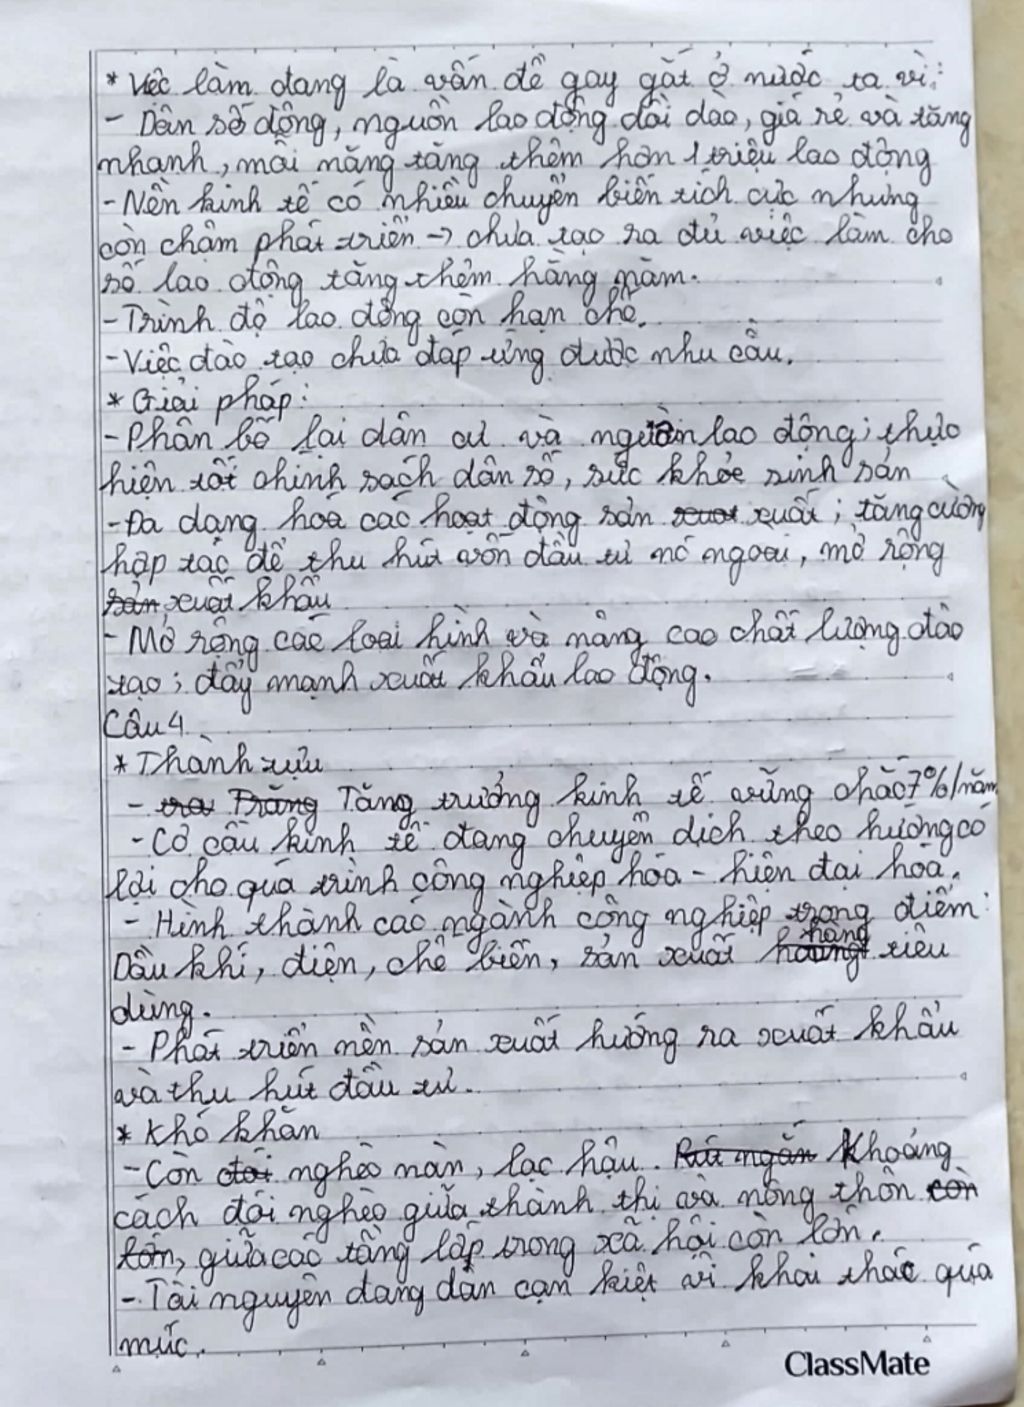 * Việc làm đang là vấn đề gay gắt ở nước ta vì:
- Dân số đông, nguồn lao động dồi dào, giá rẻ và tăng
nhanh, mỗi năng tăng thêm hơn 1 triệu lao động
- Nền kinh tế có nhiều chuyển biến tích cực nhưng
còn chậm phát triển → chưa tạo ra đủ việc làm cho
số lao động tăng thêm hằng năm.
- Trình độ lao động còn hạn chế.
- Việc đào tạo chưa đáp ứng được nhu cầu.
* Giải pháp:
- Phân bố lại dân cư và nguồn lao động; thực
hiện tốt chính sách dân số, sức khỏe sinh sản
- Đa dạng hoá các hoạt động sản xuất; tăng cường
hợp tác để thu hút vốn đầu tư nc ngoài, mở rộng
sản xuất khẩu
- Mở rộng các loại hình và nâng cao chất lượng đào
tạo; đẩy mạnh xuất khẩu lao động.
Câu 4
* Thành tựu
- Trăng Tăng trưởng kinh tế vững chắc 7%/năm
- Cơ cấu kinh tế đang chuyển dịch theo hướng có
lợi cho quá trình công nghiệp hóa - hiện đại hoá.
- Hình thành các ngành công nghiệp trọng điểm:
Dầu khí, điện, chế biến, sản xuất hàng tiêu
dùng.
- Phát triển nền sản xuất hướng ra xuất khẩu
và thu hút đầu tư.
* Khó khăn
- Còn đói nghèo nàn, lạc hậu. Rút ngắn Khoảng
cách đói nghèo giữa thành thị và nông thôn còn
lớn, giữa các tầng lớp trong xã hội còn lớn.
- Tài nguyên đang dần cạn kiệt vì khai thác quá
mức.
ClassMate